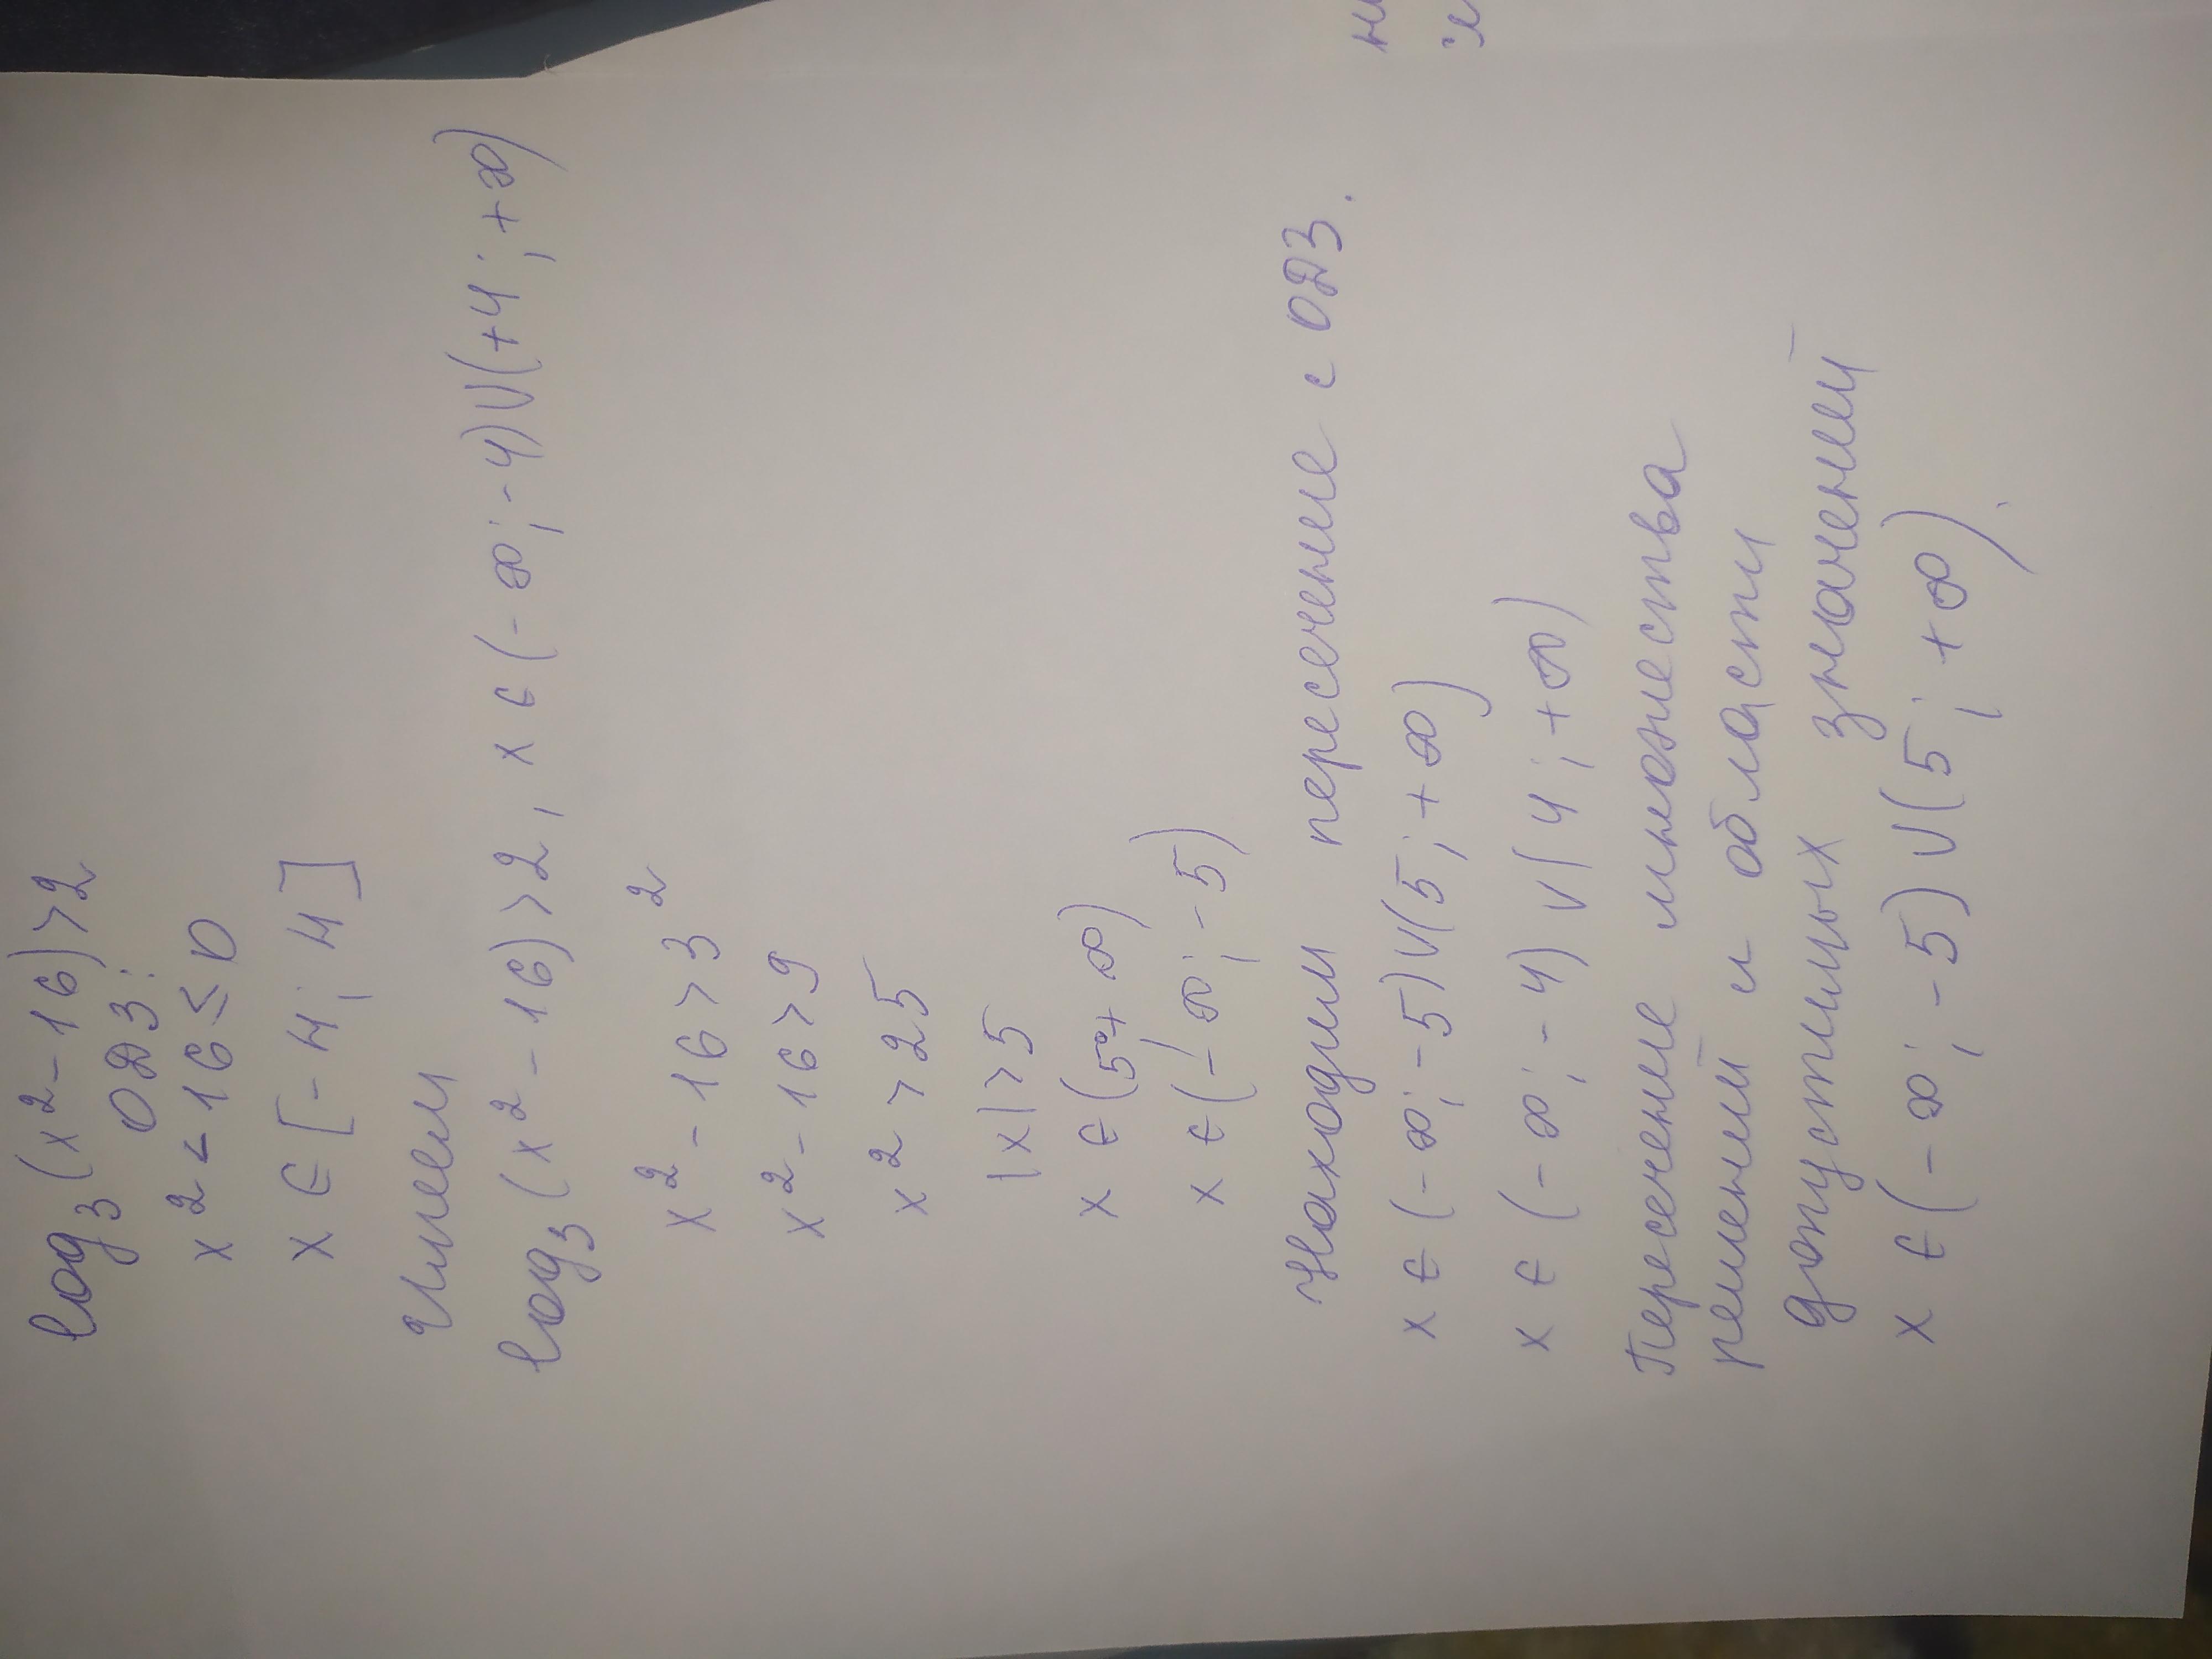 log₃(x²-16)>2
ОДЗ:
x² - 16 ≤ 0
x ∈ [-4; 4]
Имеем
log₃(x²-16)>2, x ∈ (-∞; -4)∪(+4; +∞)
x²-16>3²
x²-16>9
x²>25
|x|>5
x ∈ (5; +∞)
x ∈ (-∞; -5)
Находим пересечение с ОДЗ.
x ∈ (-∞; -5)∪(5; +∞)
x ∈ (-∞; -4)∪(4; +∞)
Пересечение множества
решений и области
допустимых значений
x ∈ (-∞; -5)∪(5; +∞).